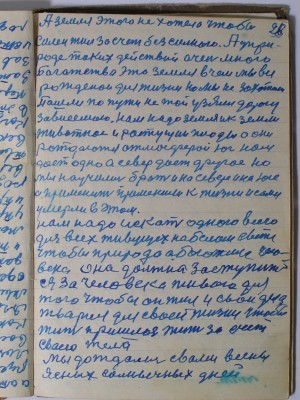 28
А земля этого не хотела чтобы
силен жил за счет безсилного. А у при-
роде таких действий очен много
богатство это земля в чом мы вси
рождены для жизни но мы не захотели
Пошли по пути не той узяли дорогу
зависимого, нам надо земля и к земли
животное и ростущие плоды а они
рождаются атмосферой юг нам
дает одно а север дает другое но
мы научилис брат и на севере и на юге
и применит применили к жизни и сами
умерли в этом.
нам надо искат одного всего
для всех живущих на белом свете
чтобы природа
века она должна заступит
ся за человека живого для
того чтобы он жил и свои
для своей жизни чтобы
жит пришлос жит за счет
своего тела
Мы дождалис свами весны
ясних солнычных дней